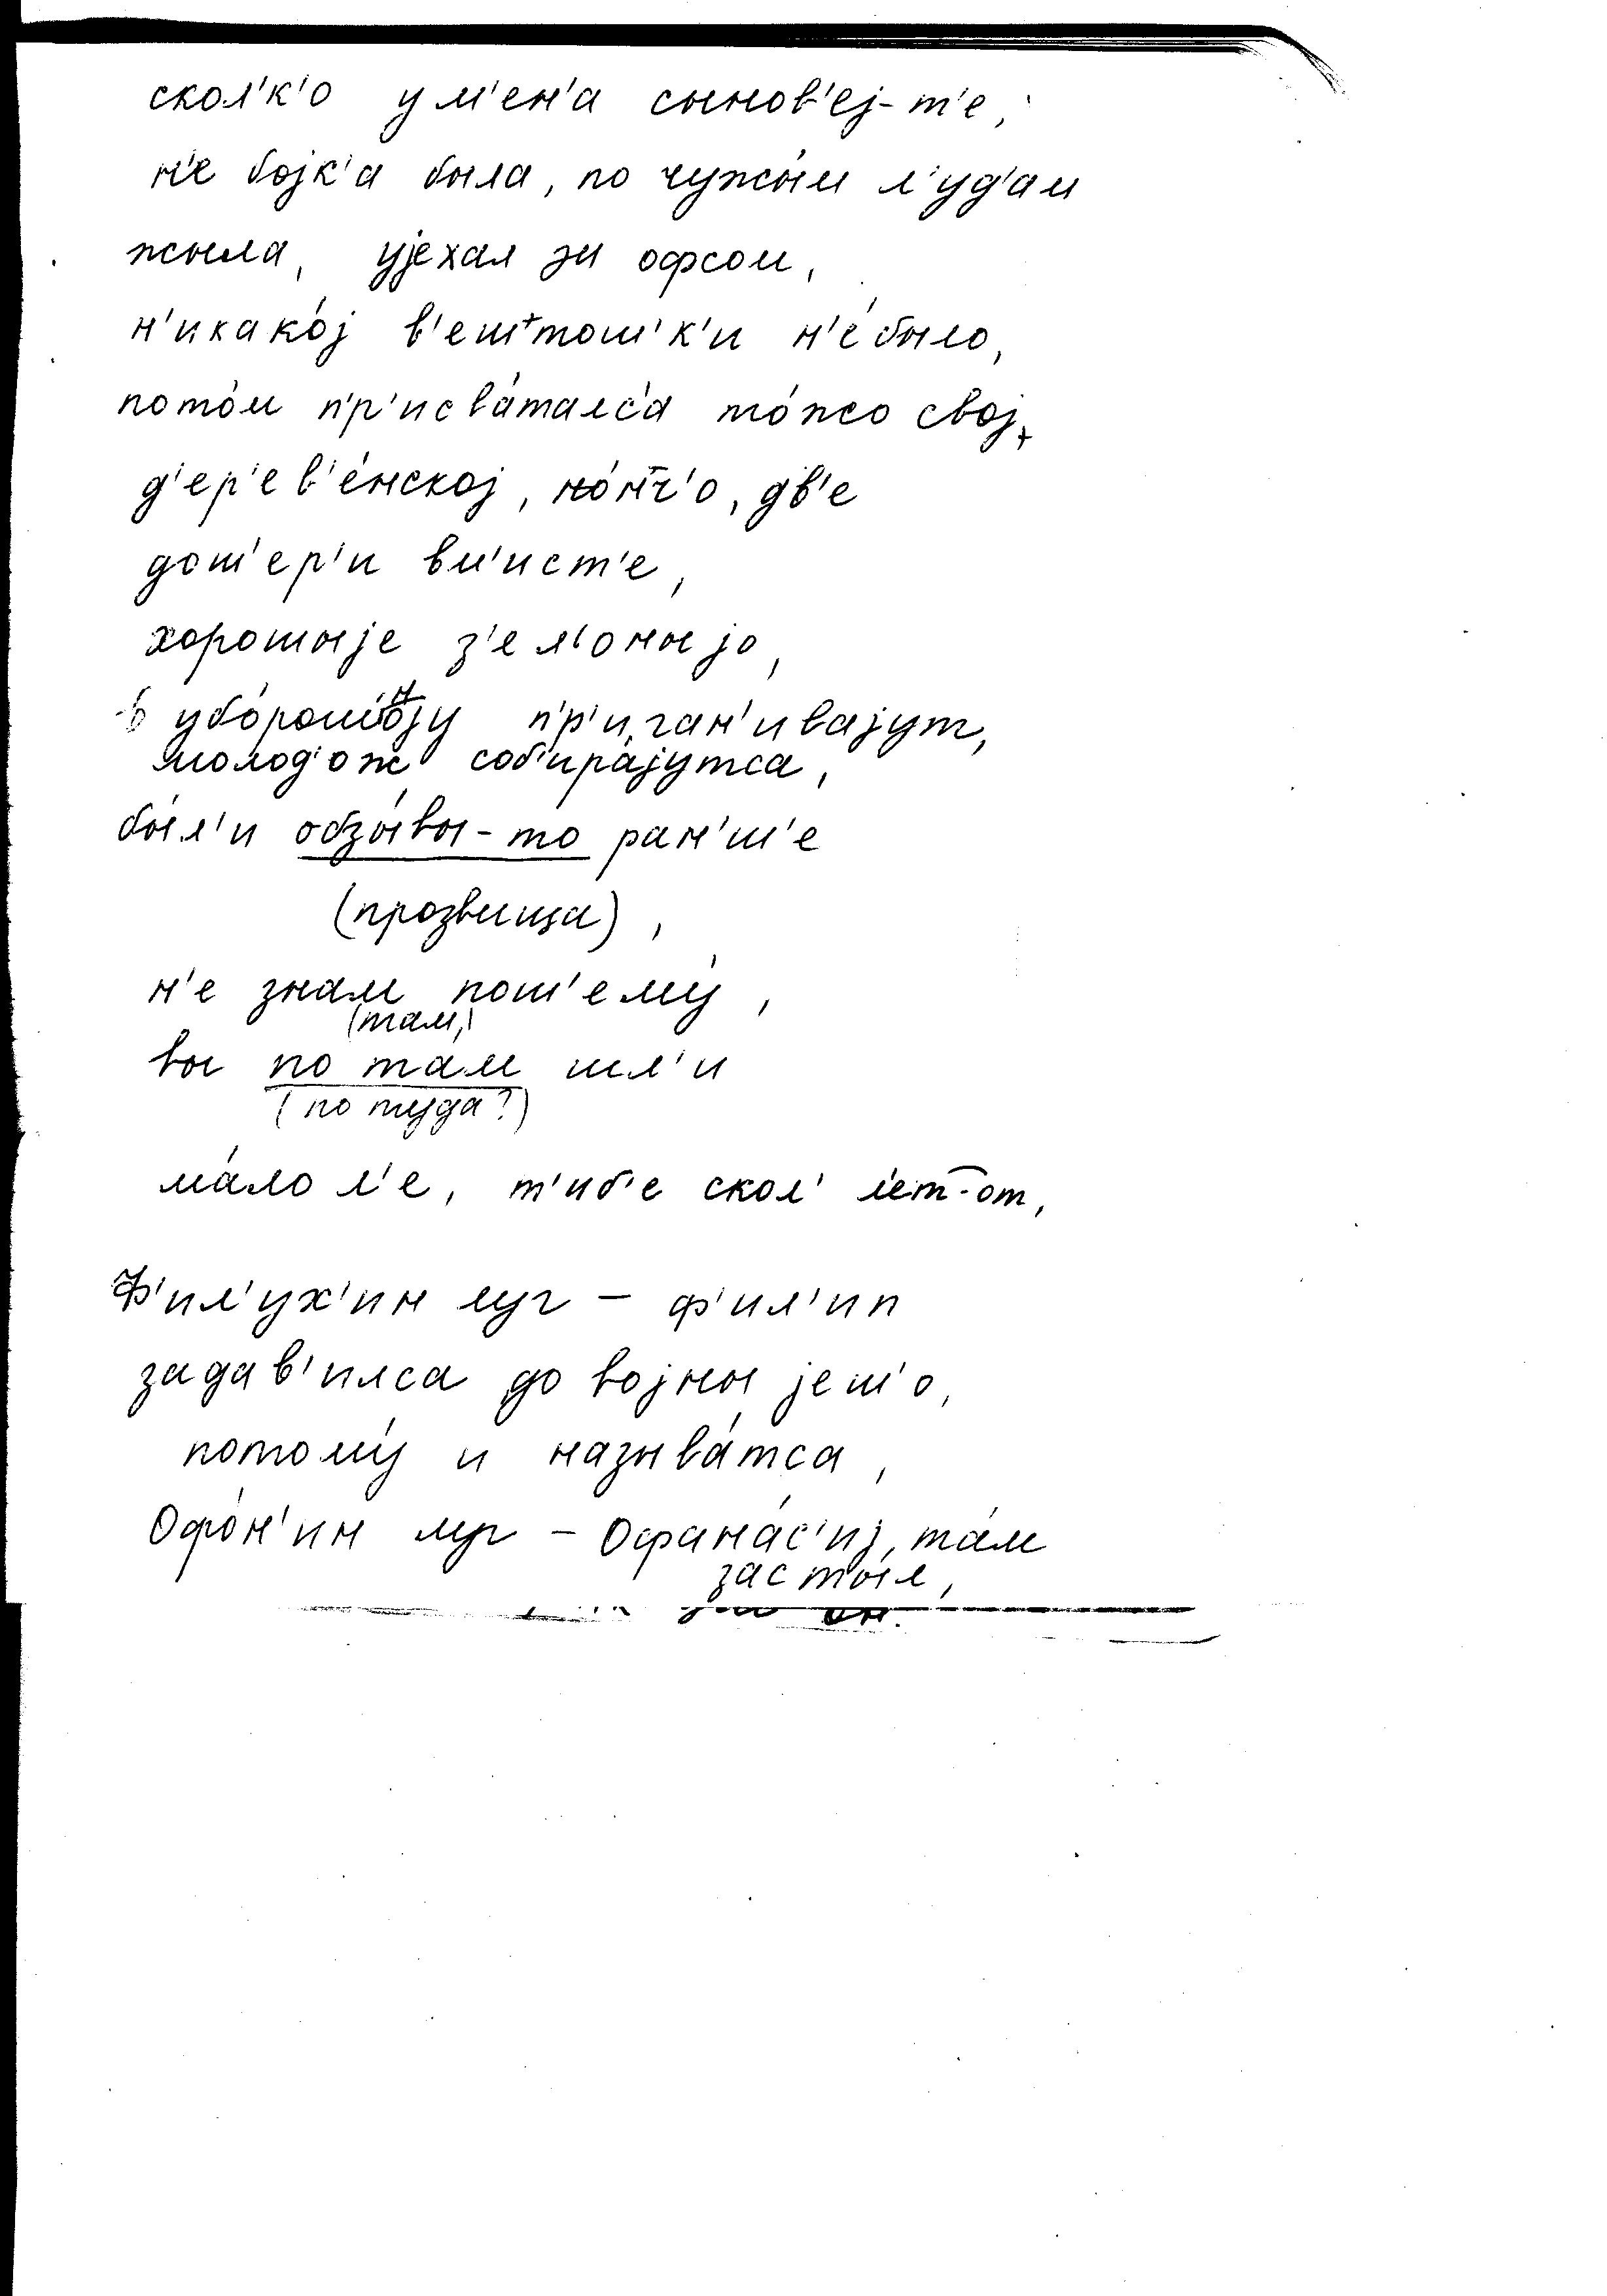 скол'к'о у м'ен'а сынов'еј-т'е,
н'е бојк'а была, по чужы́м л'уд'ам
жыла, ујехал за офсом,
н'ика ко́ј в'ештош'к'и н'е́ было,
пото́м пр'исва́талс'а то́жо својͅ
д'ер'ев'е́нској, но́нч'о, дв'е
дош'ер'и вм'ист'е,
хорошыје з'ел'оныјо,
в убо́рош'ну пр'иган'ивајут,
молод'ож соб'ира́јутса,
бы́л'и обзы́вы-то ран'ш'е
(прозвища),
н'е знам пош'ему́,
(там,)
вы по там шл'и
(по туда?)
ма́ло л'е, т'иб'е скол' л'ет-от,
Ф'ил'ух'ин луг – ф'ил'ип
задав'илса до војны јеш'о,
потому́ и называ́тса,
Офо́н'ин луг – Офана́с'иј, та́м
засты́л,